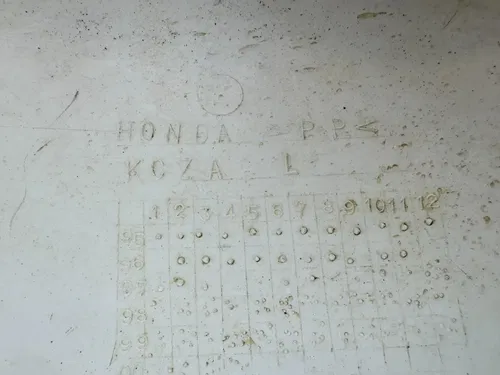 HONDA >P.P<
KCZA L
1 2 3 4 5 6 7 8 9 10 11 12
95
96
97
98
99